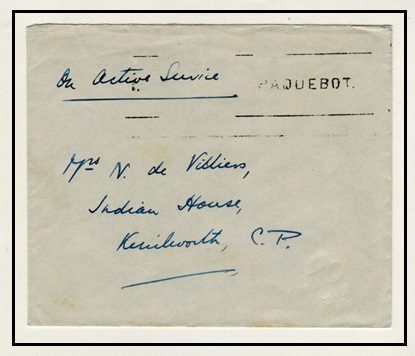 On Active Service
PAQUEBOT.
Mrs N. de Villiers,
Indian House,
Kenilworth, C.P.